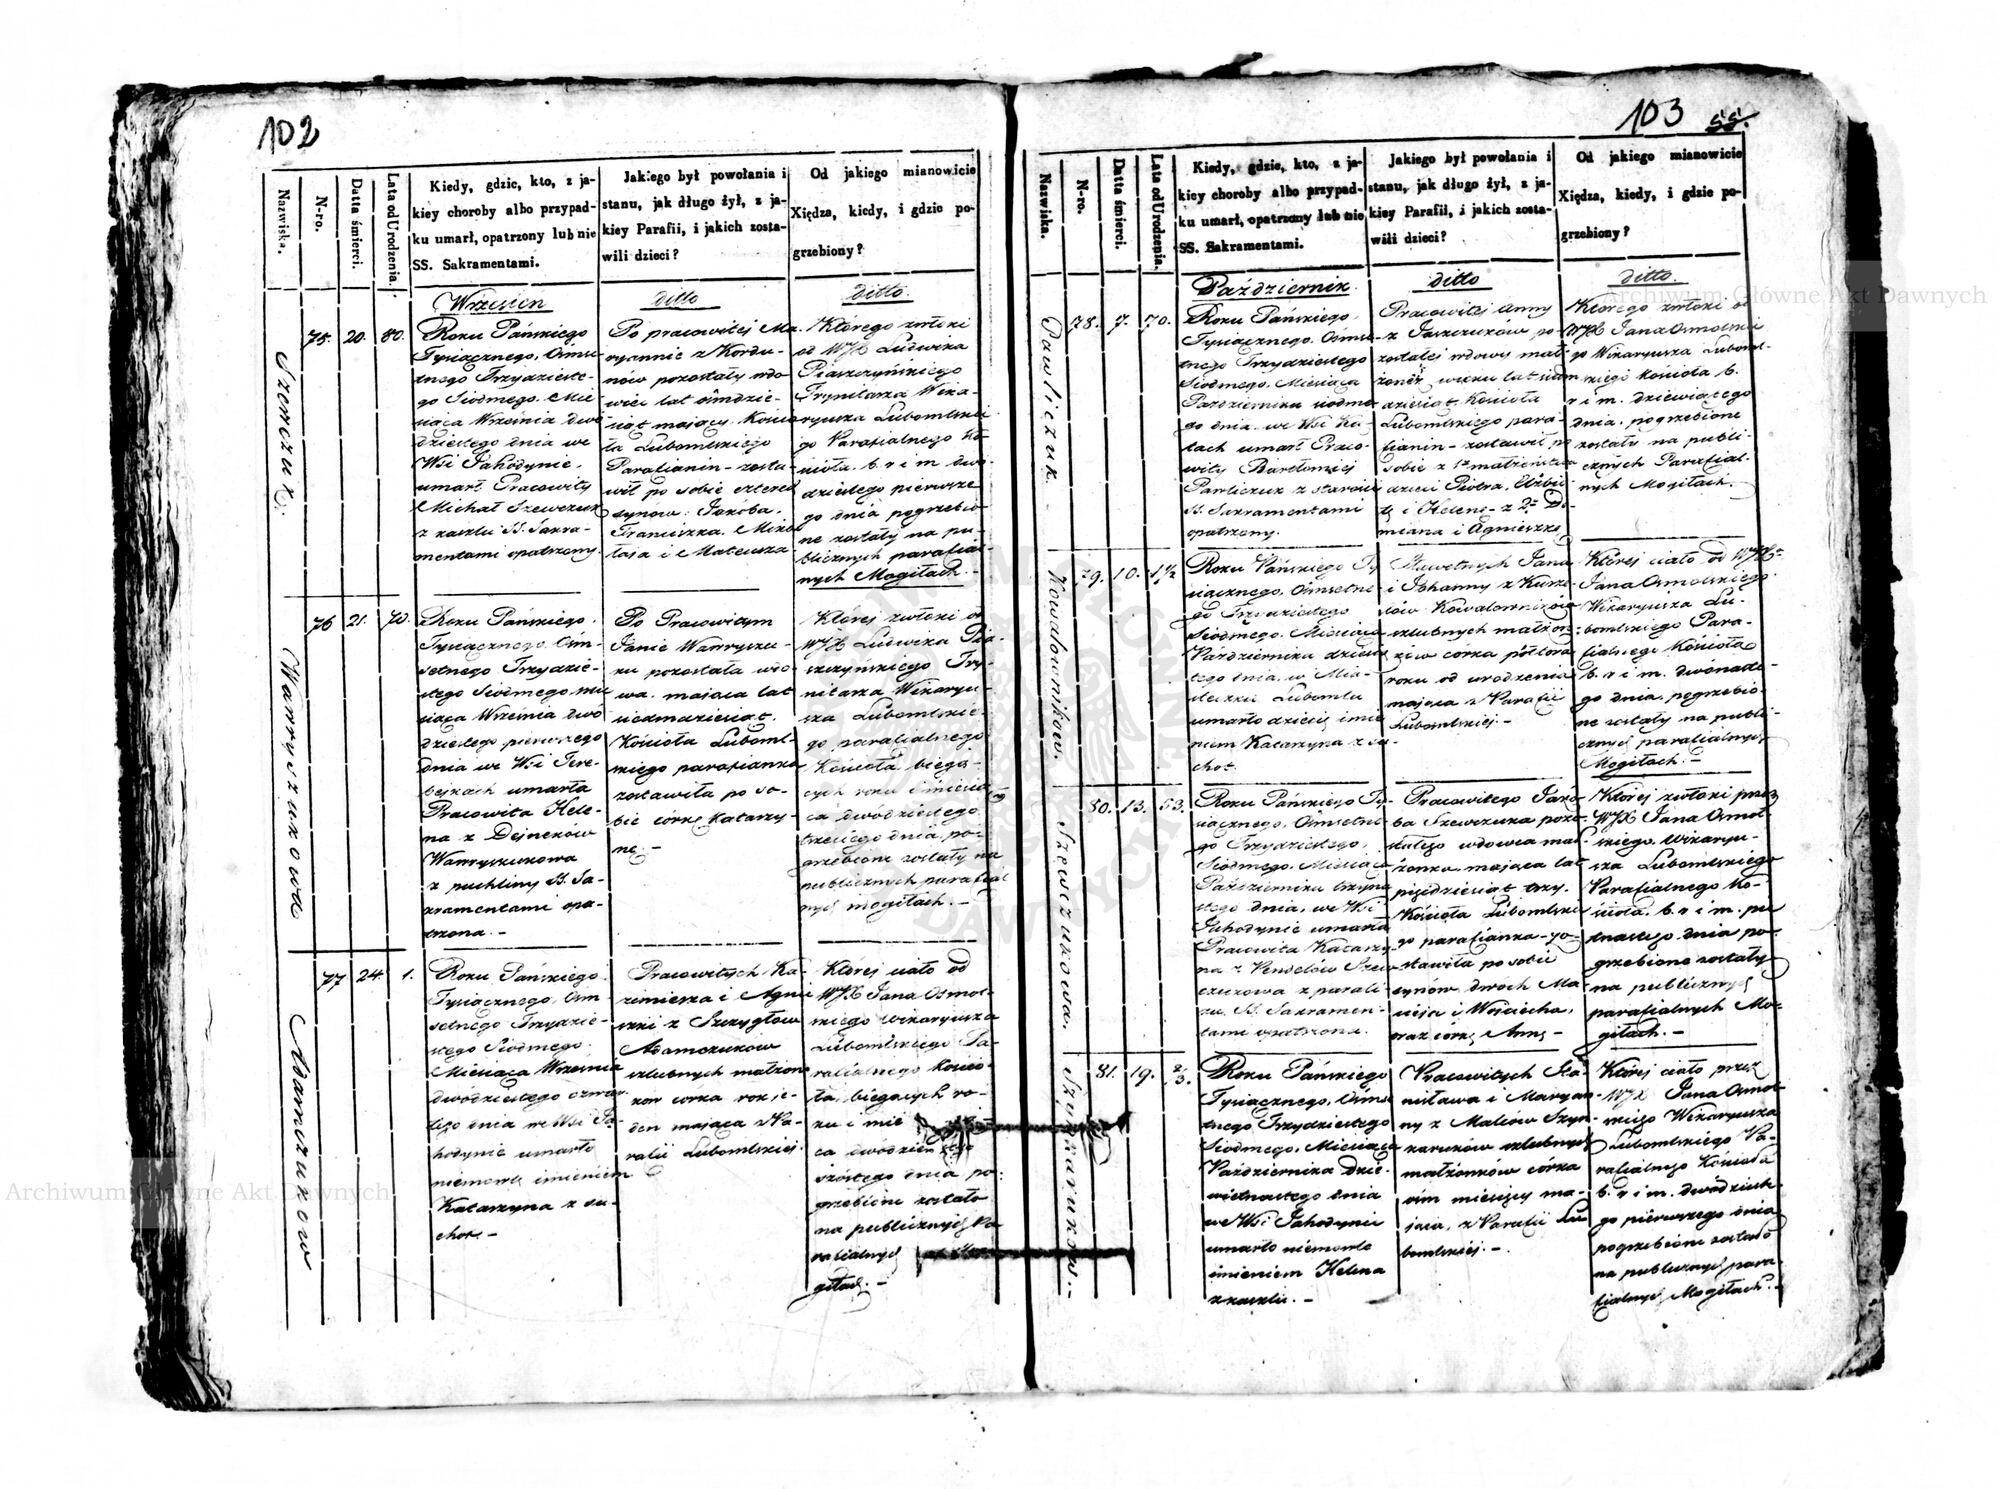 102
Nazwiska.
N-ro.
Datta śmierci.
Lata od Urodzenia.
Kiedy, gdzie, kto, z ja-
kiey choroby albo przypad-
ku umarł, opatrzony lub nie
SS. Sakramentami.
Jakiego był powołania i
stanu, jak długo żył, z ja-
kiey Parafii, i jakich zosta-
wili dzieci?
Od jakiego mianowicie
Xiędza, kiedy, i gdzie po-
grzebiony?
Wrzesien
ditto
ditto.
Szewczuk.
75. 20. 80.
Roku Pańskiego
Tysiącznego, Ośmse-
tnego Trzydzieste-
go Siodmego. Mie-
siąca Września dwó
dziestego dnia we
Wsi Jahodynie,
umarł Pracowity
Michał Szewczuk
z kaszlu SS. Sakra-
mentami opatrzony.
Po pracowitej Ma-
ryannie z Kordu-
nów pozostały wdo
wiec lat ośmdzie-
siąt mający. Kościo
ła Lubomlskiego
Parafianin - zosta-
wił po sobie czterech
synow: Jakóba,
Franciszka. Miko
łaja i Mateusza
Którego zwłoki
od WJX Ludwika
Piaszczyńskiego
Trynitarza Wika-
ryusza Lubomlskie
go Parafialnego Ko-
ścioła. b. r i m dwó-
dziestego pierwsze
go dnia pogrzebio-
ne zostały na pu-
blicznych parafial-
nych Mogiłach. -
Wawryszukowa
76 21. 70.
Roku Pańskiego,
Tysiącznego, Ośm-
setnego Trzydzie-
stego Siódmego mie
siąca Września dwó
dziestego pierwszego
dnia we Wsi Tere-
bejkach umarła
Pracowita Hele-
na z Dejneków
Wawryszukowa
z puchliny SS. Sa-
kramentami opa-
trzona. -
Po Pracowitym
Janie Wawryszu-
ku pozostała wdo
wa. mająca lat
siedmdziesiąt.
Kościoła Luboml-
skiego parafianka
zostawiła po so-
bie córkę Katarzy-
nę. -
Której zwłoki od
WJX Ludwika Pia-
szczyńskiego Try-
nitarza Wikaryu-
sza Lubomlskie-
go parafialnego
Kościoła bieżą-
cych roku i miesią
ca dwódziestego
trzeciego dnia, po-
grzebione zostały na
publicznych parafial
nych mogiłach. -
Adamczukow
77 24. 1.
Roku Pańskiego.
Tysiącznego, Ośm
setnego Trzydzie-
stego Siodmego,
Miesiąca Września
dwódziestego czwar
tego dnia we Wsi Ja-
hodynie umarło
niemowlę imieniem
Katarzyna z su-
chot. -
Pracowitych Ka-
zimierza i Agnie
szki z Szczygłow
Adamczukow
szlubnych małżon
kow córka rok je-
den mająca z Pa-
rafii Lubomlskiej.
Której ciało od
WJX Jana Osmol-
skiego Wikaryusza
Lubomlskiego Pa-
rafialnego Kościo-
ła, bieżących ro-
ku i mie
ca dwódzies
szóstego dnia po-
grzebione zostało
na publicznych Pa
rafialnych
giłach. -
103 55.
Nazwiska.
N-ro.
Datta śmierci.
Lata od Urodzenia.
Kiedy, gdzie, kto, z ja-
kiey choroby albo przypad-
ku umarł, opatrzony lub nie
SS. Sakramentami.
Jakiego był powołania i
stanu, jak długo żył, z ja-
kiey Parafii, i jakich zosta-
wili dzieci?
Od jakiego mianowicie
Xiędza, kiedy, i gdzie po-
grzebiony?
Październik
ditto
ditto.
Pawliczuk.
78. 7. 70.
Roku Pańskiego,
Tysiącznego, Ośmse-
tnego Trzydziestego
Siodmego, Miesiąca
Października siódme
go dnia. we Wsi Ku-
tach umarł Praco-
wity Bartłomiej
Pawliczuk z starości
SS. Sakramentami
opatrzony.
Pracowitej Anny
z Jaszczuków po-
zostałej wdowy mał-
żonek, wieku lat siedm
dziesiąt. Kościoła
Lubomlskiego para-
fianin - zostawił po
sobie z 1go małżeństwa
dzieci Piotra,
i Helenę - z 2go De-
miana i Agnieszkę
Którego zwłoki od
WJX Jana Osmolski
go Wikaryusza Luboml-
skiego kościoła b.
r i m. dziewiątego
dnia, pogrzebione
zostały na publi-
cznych Parafial-
nych Mogiłach.
Kowalownikow.
79. 10. 1 1/2
Roku Pańskiego Ty-
siącznego, Ośmsetne
go Trzydziestego
Siodmego. Miesiąca
Października dziesią
tego dnia, w Mia-
steczku Lubomlu
umarło dziecię imie
niem Katarzyna z su
chot.
Sławetnych Jana
i Johanny z Kurze
Kowalownikow
szlubnych małżon-
ków córka półtora
roku od urodzenia
mająca z Parafii
Lubomlskiej. -
Której ciało od WJXa
Jana Osmolskiego
Wikaryusza Lu-
bomlskiego Para-
fialnego Kościoła
b. r i m. dwónaste-
go dnia, pogrzebio-
ne zostały na publi-
cznych parafialnych
Mogiłach. -
Szewczukowa.
80. 13. 53.
Roku Pańskiego Ty-
siącznego, Ośmsetne-
go Trzydziestego,
Siodmego, Miesiąca
Października trzyna
stego dnia, we Wsi
Jahodynie umarła
Pracowita Katarzy-
na z Szew
czukowa z parali-
żu, SS. Sakramen-
tami opatrzona.
Pracowitego Jakó-
ba Szewczuka pozo-
stałego wdowca mał-
żonka, mająca lat
pięćdziesiąt trzy.
Kościoła Lubomlskie
go parafianka - zo-
stawiła po sobie
synow, dwoch Ma-
cieja i Wojciecha,
oraz córkę Annę -
Której zwłoki przez
WJX Jana Osmol-
skiego, Wikaryu-
sza Lubomlskiego
Parafialnego Ko-
ścioła. b. r i m. pię
tnastego dnia po-
grzebione zostały
na publicznych
parafialnych Mo-
giłach. -
81. 19. 2/3.
Roku Pańskiego
Tysiącznego, Ośmse
tnego Trzydziestego
Siodmego, Miesiąca
Października Dzie-
więtnastego dnia
we Wsi Jahodynie
umarło niemowle
imieniem Helena
z kaszlu. -
Pracowitych Sta-
nisława i Maryan-
ny z Maliów Szyn
karuków szlubnych
małżonkow córka
ośm miesięcy ma-
jąca, z Parafii Lu
bomlskiej. -
Której ciało przez
WJX Jana Osmol-
skiego Wikaryusza
Lubomlskiego Pa-
rafialnego Kościoła
b. r i m. dwódzieste
go pierwszego dnia
pogrzebione zostało
na publicznych para-
fialnych Mogiłach. -
Szynkarukow. -
Archiwum Główne Akt Dawnych
Archiwum Główne Akt Dawnych